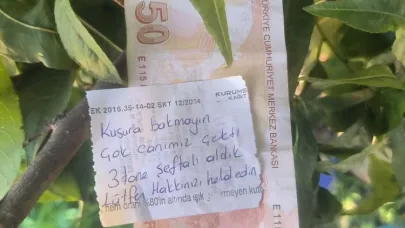 50
E 115
TÜRKİYE CUMHURİYET MERKEZ BANKASI
E 115
EK 2016.35-14-02 SKT 12/2024
Kusura bakmayın
Çok canımız çekti
3 tane şeftali aldık
Lütfen Hakkınızı helal edin
nem oranı %80'in altında ışık
meyen kut